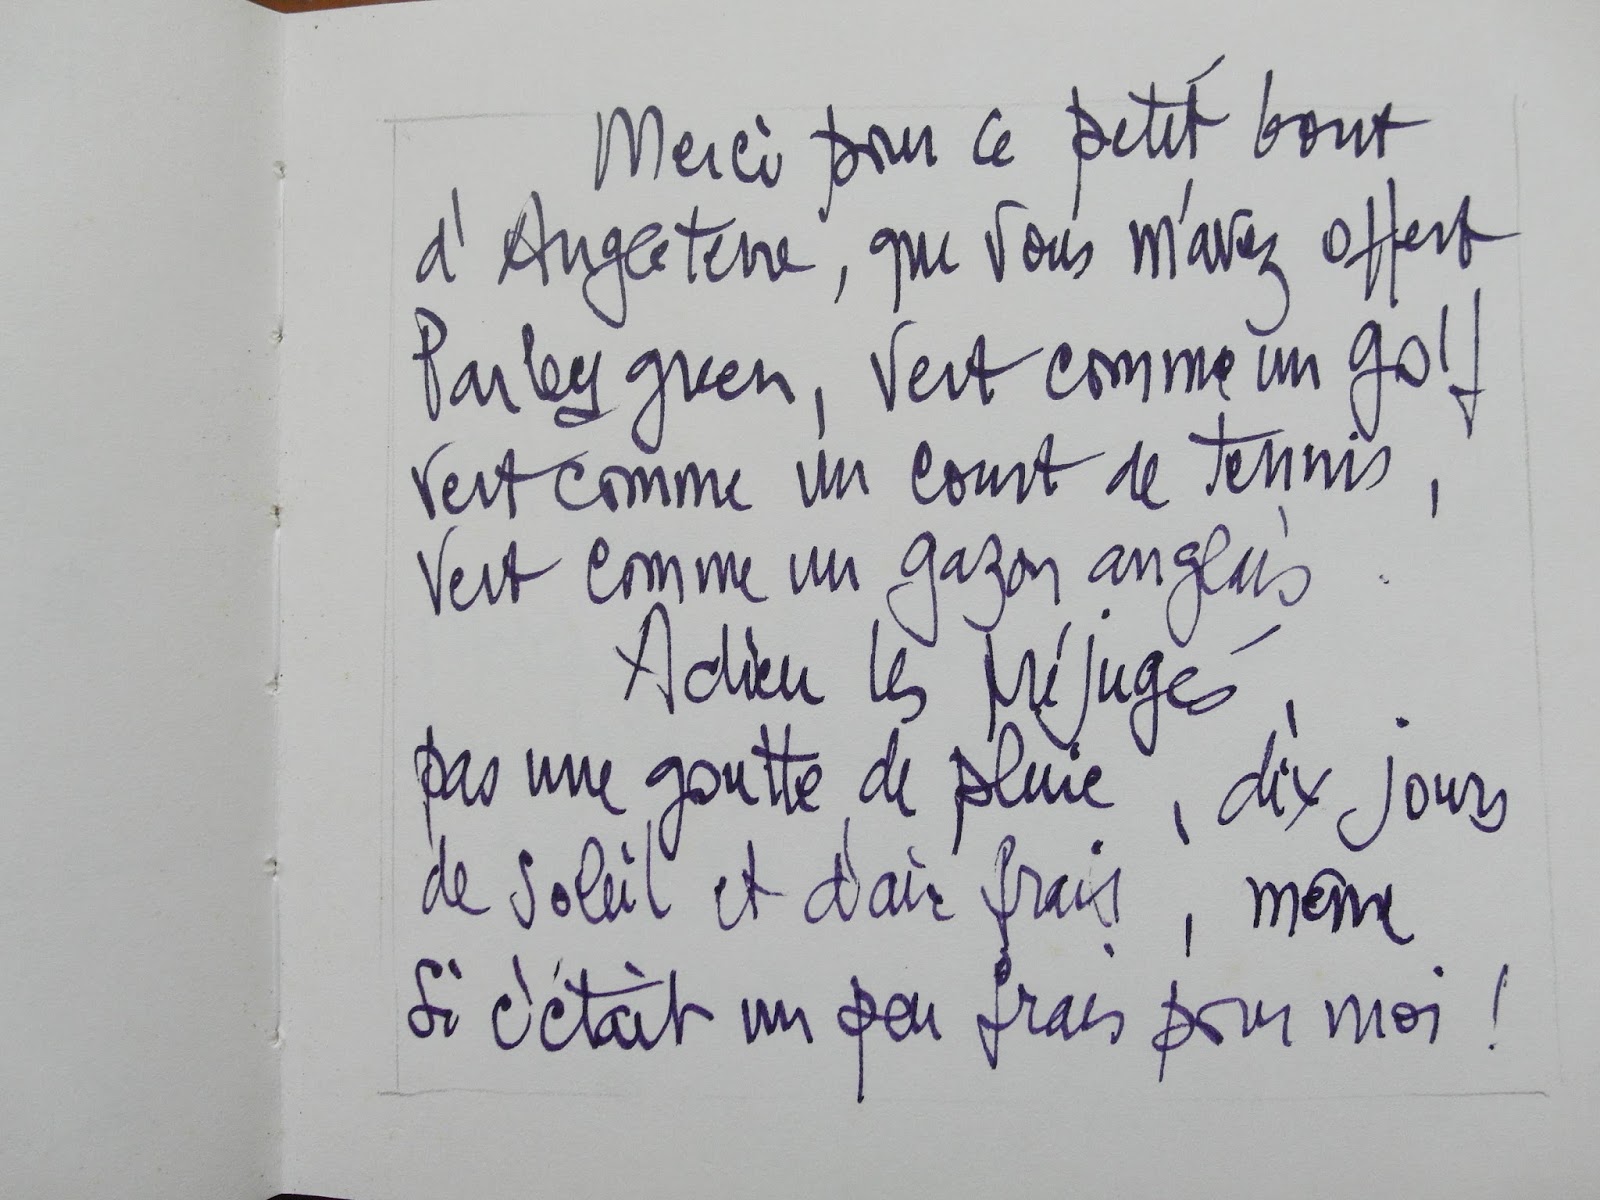 Merci pour ce petit bout
d'Angleterre, que vous m'avez offert
Parley green, vert comme un golf
vert comme un court de tennis,
vert comme un gazon anglais.
Adieu les préjugés,
pas une goutte de pluie, dix jours
de soleil et d'air frais, même
si c'était un peu frais pour moi !